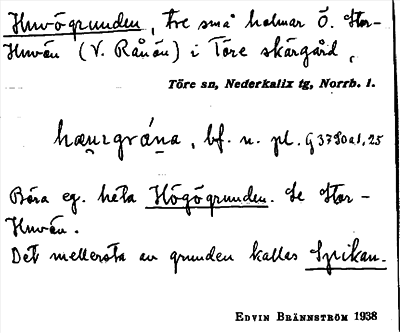 Huvögrunden, tre små holmar Ö. Stor-
Huvön (V. Rånön) i Töre skärgård,
Töre sn, Nederkalix tg, Norrb. l.
bf. n. pl. G 3780 a1, 25
Böra eg. heta Högögrunden. Se Stor-
Huvön.
Det mellersta av grunden kallas Spikan.
EDVIN BRÄNNSTRÖM 1938